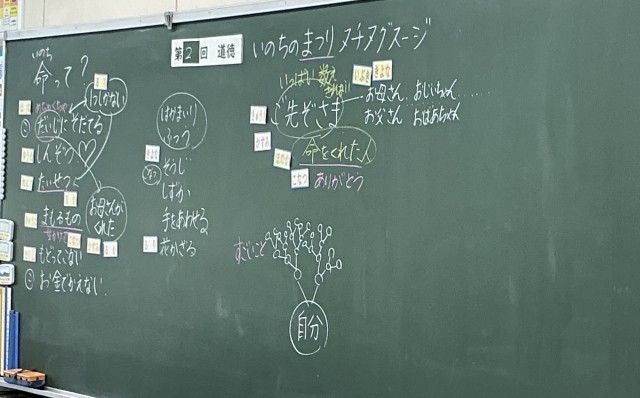 第2回 道徳
いのちのまつり ヌチヌグスージ
いのち
命って?
1つしかない
だいじにそだてる
しんぞう
たいせつ
お母さんが
くれた
まもるもの
もどってこない
お金でかえない
はかまいり
ふつう
そうじ
しずか
手をあわせる
花かざる
いっぱい 数え
きれない
ご先ぞさま
お母さん、おじいちゃん……
お父さん おばあちゃん
命をくれた人
ありがとう
すごいこと
自分